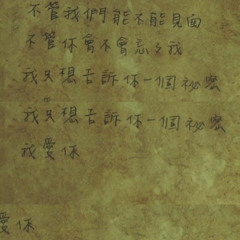 不管我們能不能見面
不管你會不會忘了我
我只想告訴你一個祕密
我只想告訴你一個祕密
我愛你
愛你